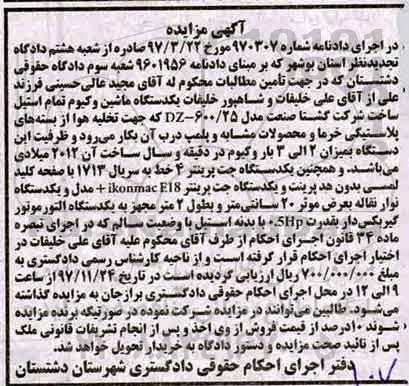 آگهی مزایده
در اجرای دادنامه شماره ۹۷۰۳۰۷ مورخ ۹۷/۳/۲۲ صادره از شعبه هشتم دادگاه
تجدیدنظر استان بوشهر که بر مبنای دادنامه ۹۶۰۱۹۵۶ شعبه سوم دادگاه حقوقی
دشتستان که در جهت تأمین مطالبات محکوم له آقای مجید عالی‌حسینی فرزند
علی از آقای علی خلیفات و شاهپور خلیفات یکدستگاه ماشین وکیوم تمام استیل
ساخت شرکت گشتا صنعت مدل DZ-۶۰۰/۲۵ که جهت تخلیه هوا از بسته‌های
پلاستیکی خرما و محصولات مشابه و پلمب درب آن بکار می‌رود و ظرفیت این
دستگاه بمیزان ۲ الی ۳ بار وکیوم در دقیقه و سال ساخت آن ۲۰۱۲ میلادی
می‌باشد. و همچنین یکدستگاه جت پرینتر ۴ خط به سریال ۱۷۱۳ با صفحه کلید
لمسی بدون هد پرینت و یکدستگاه جت پرینتر ikonmac E18+ مدل و یکدستگاه
نوار نقاله بعرض موتر ۲۰ سانتی‌متر و بطول ۲ متر مجهز به یکدستگاه الکتوموتور
گیربکس‌دار بقدرت 5Hp،۰ با بدنه استیل با وضعیت سالم که در اجرای تبصره
ماده ۳۴ قانون اجرای احکام از طرف آقای محکوم علیه آقای علی خلیفات در
اختیار اجرای احکام قرار گرفته است و از ناحیه کارشناس رسمی دادگستری به
مبلغ ۷۰۰/۰۰۰/۰۰۰ ریال ارزیابی گردیده است در تاریخ ۹۷/۱۱/۲۴ از ساعت
۹ الی ۱۲ در محل اجرای احکام حقوقی دادگستری برازجان به مزایده گذاشته
می‌شود. طالبین می‌توانند در مزایده شرکت نموده در صورتیکه برنده مزایده
شوند ۱۰درصد از قیمت فروش از وی اخذ و پس از انجام تشریفات قانونی ملک
پس از تائید صحت مزایده و دستور دادگاه به خریدار تحویل خواهد شد.
دفتر اجرای احکام حقوقی دادگستری شهرستان دشتستان